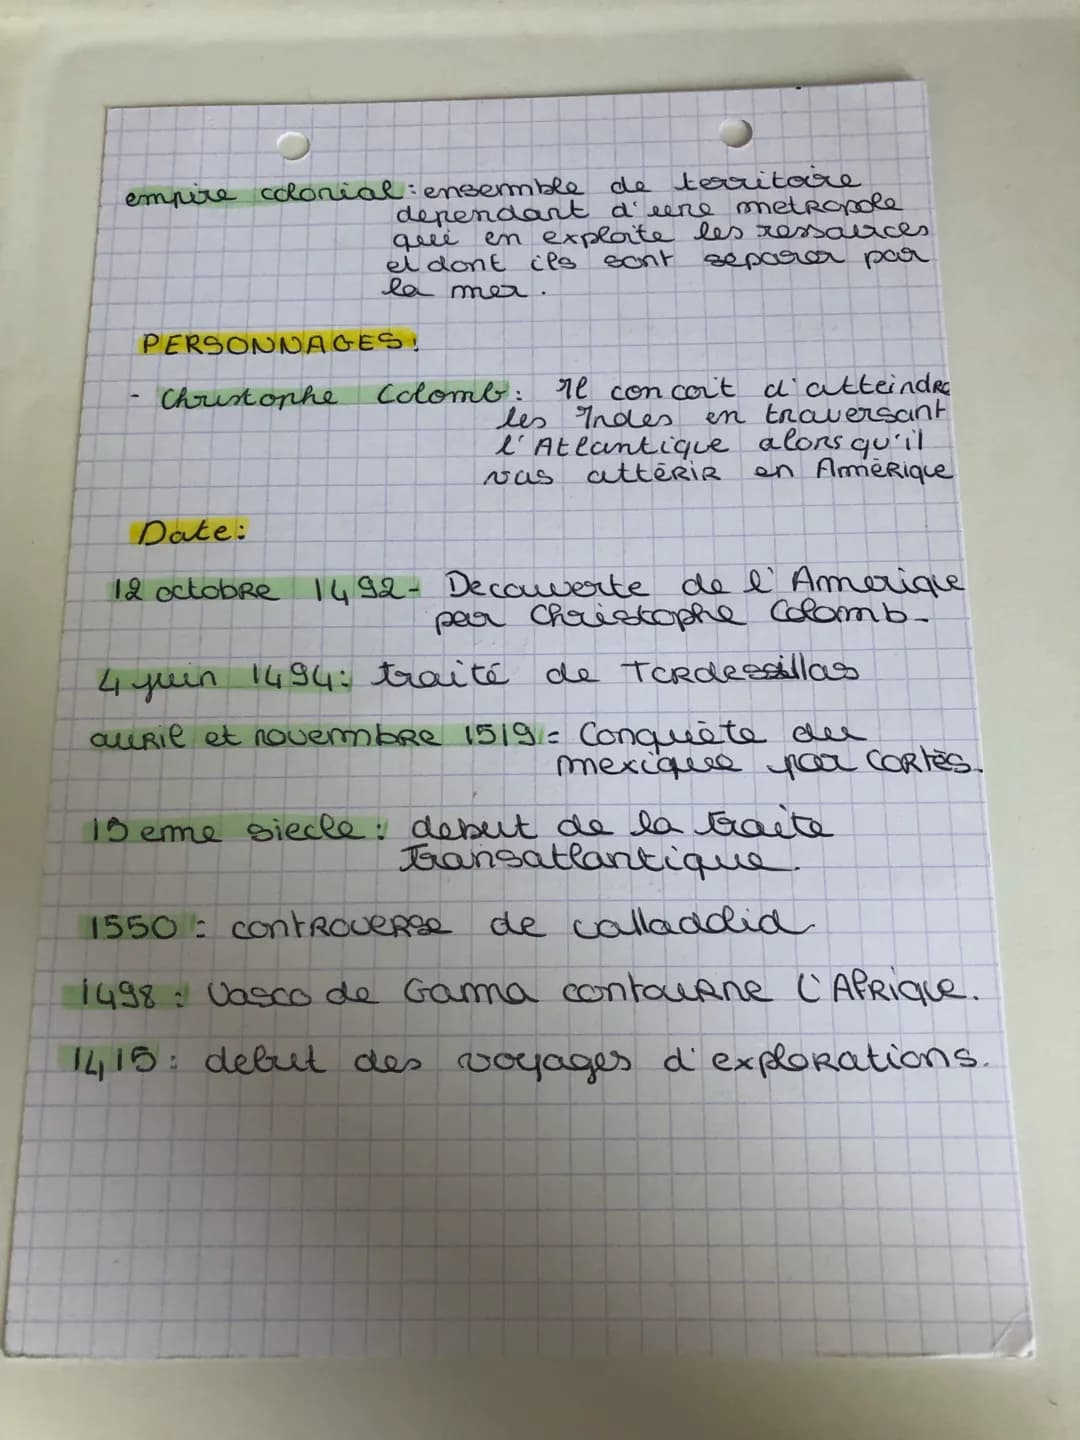 empire colonial : ensemble de territoire
dependant d'une metropole
qui en exploite les ressources
et dont ils sont séparer par
la mer.
PERSONNAGES:
- Christophe Colomb: Il concoit d'atteindre
les Indes en traversant
l'Atlantique alors qu'il
vas attérir en Amérique
Date:
12 octobre 1492- Decouverte de l'Amerique
par Christophe Colomb.
4 juin 1494: traité de Tordessillas
avril et novembre 1519: Conquête du
mexique par Cortès.
15 eme siecle: debut de la traite
transatlantique.
1550: controverse de valladolid
1498: Vasco de Gama contourne l'Afrique.
1415: debut des voyages d'explorations.